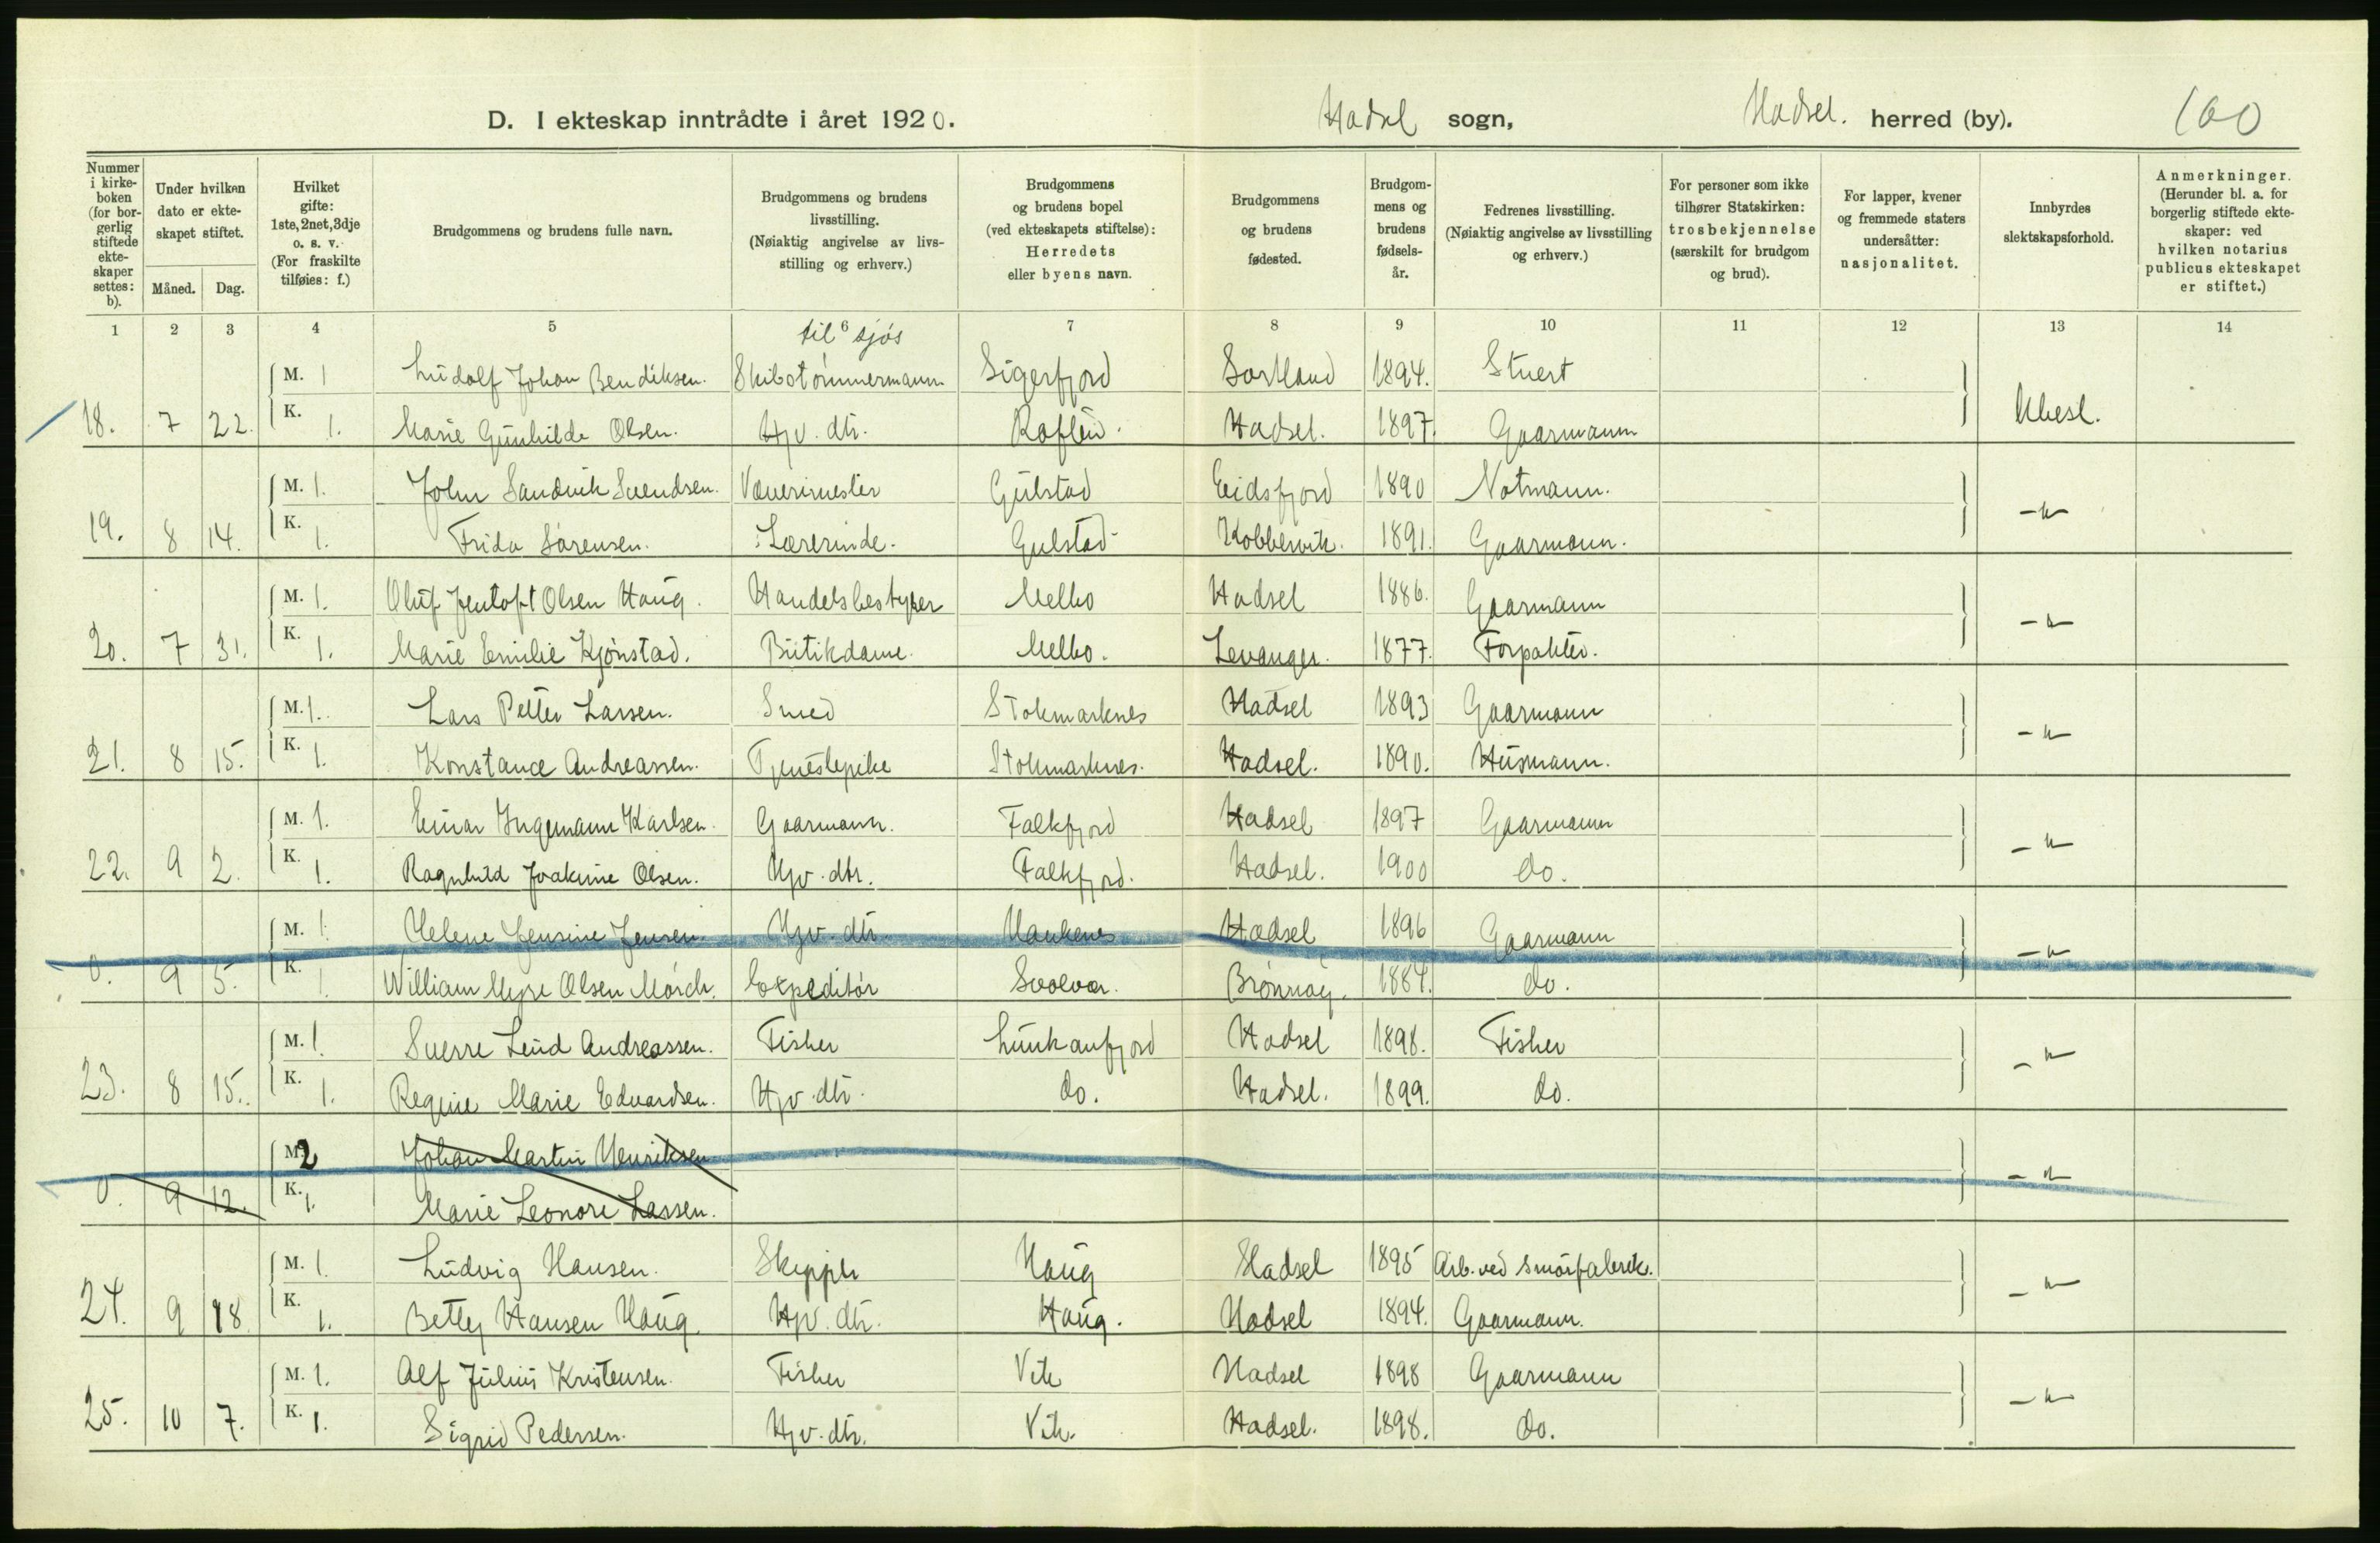 D. I ekteskap inntrådte i året 1920. Hadsel sogn, Hadsel. herred (by). 100
Nummer i kirkeboken (for borgerlig stiftede ekteskaper settes: b). Under hvilken dato er ekteskapet stiftet. Måned. Dag. Hvilket gifte: 1ste, 2net, 3dje o. s. v. (For fraskilte tilføies: f.) Brudgommens og brudens fulle navn. Brudgommens og brudens livsstilling. (Nøiaktig angivelse av livsstilling og erhverv.) Brudgommens og brudens bopel (ved ekteskapets stiftelse): Herredets eller byens navn. Brudgommens og brudens fødested. Brudgommens og brudens fødselsår. Fedrenes livsstilling. (Nøiaktig angivelse av livsstilling og erhverv.) For personer som ikke tilhører Statskirken: trosbekjennelse (særskilt for brudgom og brud). For lapper, kvener og fremmede staters undersåtter: nasjonalitet. Innbyrdes slektskapsforhold. Anmerkninger. (Herunder bl. a. for borgerlig stiftede ekteskaper: ved hvilken notarius publicus ekteskapet er stiftet.)
1 2 3 4 5 6 7 8 9 10 11 12 13 14
til sjøs
M. 1 Ludolf Johan Bendiksen. Skibstømmermann Sigerfjord Sortland 1894. Stuert
18. 7 22. K. 1. Marie Gunhilde Olsen. Hjv. dtr. Hadsel. 1897. Gaarmann Ubesl.
M. 1. John Sandvik Svendsen. Gulstad Eidsfjord 1890 Notmann.
19. 8 14. K. 1. Frida Sørensen. Lærerinde. Gulstad Kobbervik. 1891. Gaarmann. -"-
M. 1. Oluf Jentoft Olsen Haug. Handelsbestyrer Melbo Hadsel 1886. Gaarmann
20. 7 31. K. 1. Marie Emilie Kjønstad. Butikdame. Melbo. Levanger. 1877. Forpakter. -"-
M. 1. Lars Petter Larsen. Smed Stokmarknes Hadsel 1893 Gaarmann
21. 8 15. K. 1. Konstance Andreassen. Tjenestepike Stokmarknes. Hadsel. 1890. Husmann. -"-
M. 1. Einar Ingemann Karlsen. Gaarmann. Falkfjord Hadsel 1897 Gaarmann
22. 9 2. K. 1. Ragnhild Joakime Olsen. Hjv. dtr. Falkfjord. Hadsel. 1900 do. -"-
M. 1. Helene Jensine Jensen. Hjv. dtr. Haukenes Hadsel 1896 Gaarmann
0. 9 5. K. 1 William Myre Olsen Mørch. Expeditør Svolvær. Brønnøy. 1884. do. -"-
M. 1. Sverre Leid Andreassen. Fisker Lunkanfjord Hadsel 1898. Fisker
23. 8 15. K. 1. Regine Marie Edvardsen. Hjv. dtr. do. Hadsel. 1899. do. -"-
M. 2 Johan Martin Henriksen
0. 9 12. K. 1. Marie Leonore Lassen. -"-
M. 1. Ludvig Hansen. Skipper Haug Hadsel 1895 Arb. ved smørfabrik.
24. 9 18 K. 1. Betty Hansen Haug. Hjv. dtr. Haug. Hadsel 1894. Gaarmann. -"-
M. 1. Alf Julius Kristensen. Fisker Vik Hadsel 1898 Gaarmann
25. 10 7. K. 1. Sigrid Pedersen. Hjv. dtr. Vik. Hadsel. 1898. do. -"-